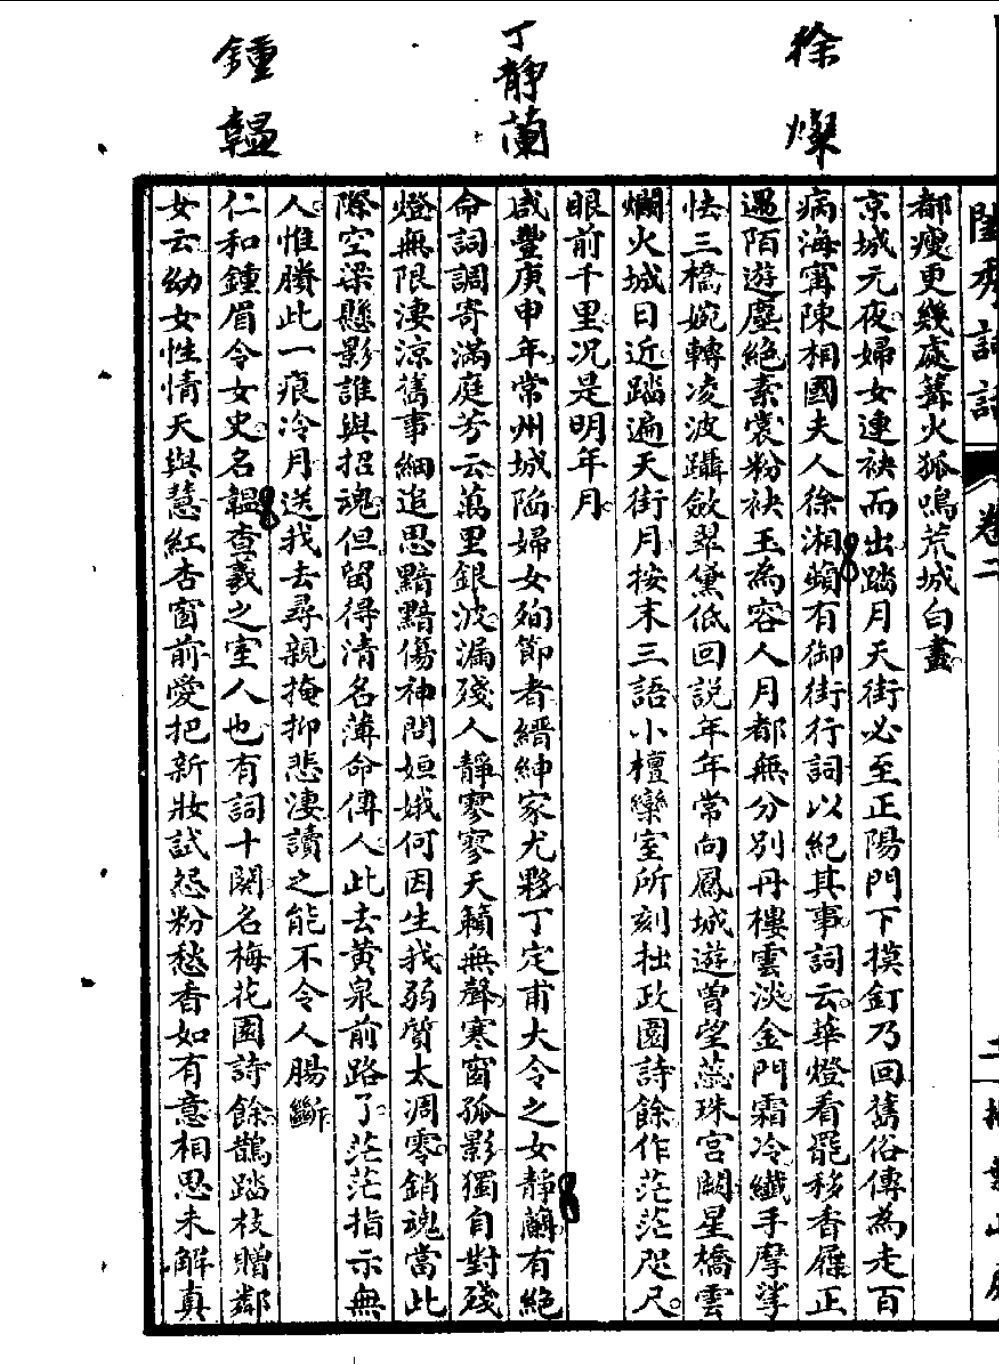 徐燦
丁靜蘭
鍾韞
閨秀詞話
卷二
二掃葉山房
都瘦更幾處篝火狐鳴荒城白晝
京城元夜婦女連袂而出踏月天街必至正陽門下摸釘乃回舊俗傳為走百
病海甯陳相國夫人徐湘蘋有御街行詞以紀其事詞云華燈看罷移香屧正
遇陌遊塵絶素裳粉袂玉為容人月都無分別丹樓雲淡金門霜冷纖手摩挲
怯三橋婉轉凌波躡斂翠黛低回説年年常向鳳城遊曾望蕊珠宮闕星橋雲
爛火城日近踏遍天街月按末三語小檀欒室所刻拙政園詩餘作茫茫咫尺
眼前千里況是明年月
咸豐庚申年常州城陷婦女殉節者縉紳家尤夥丁定甫大令之女靜蘭有絶
命詞調寄滿庭芳云萬里銀波漏殘人靜寥寥天籟無聲寒窗孤影獨自對殘
燈無限淒涼舊事細追思黯黯傷神問姮娥何因生我弱質太凋零銷魂當此
際空梁懸影誰與招魂但留得清名薄命傳人此去黃泉前路了茫茫指示無
人惟賸此一痕冷月送我去尋親掩抑悲淒讀之能不令人腸斷
仁和鍾眉令女史名韞查羲之室人也有詞十闋名梅花園詩餘鵲踏枝贈鄰
女云幼女性情天與慧紅杏窗前愛把新妝試怨粉愁香如有意相思未解真